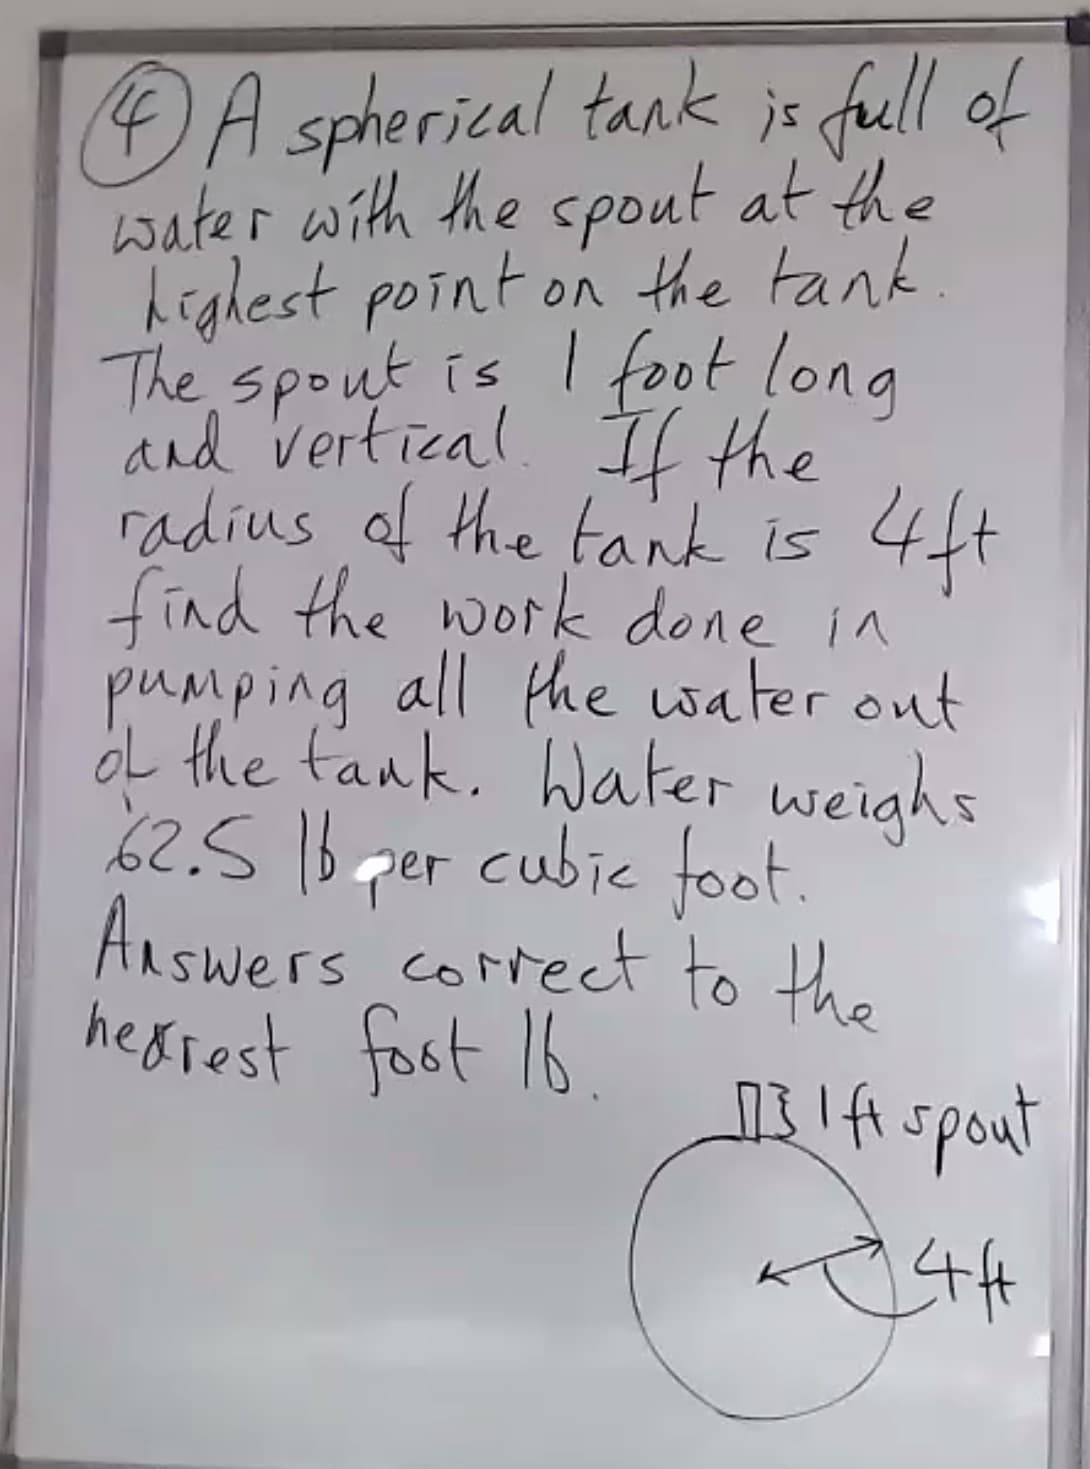 ④ A spherical tank is full of
water with the spout at the
highest point on the tank.
The spout is 1 foot long
and vertical. If the
radius of the tank is 4ft
find the work done in
pumping all the water out
of the tank. Water weighs
62.5 lb per cubic foot.
Answers correct to the
nearest foot lb.
1 ft spout
4 ft